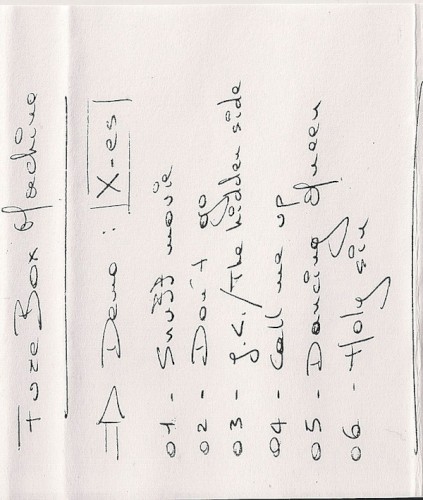 Fuze Box Machine
=> Demo : |X-es|
01 - Snuff movie
02 - Don't go
03 - J.C./The hidden side
04 - Call me up
05 - Dancing Queen
06 - Holy sin